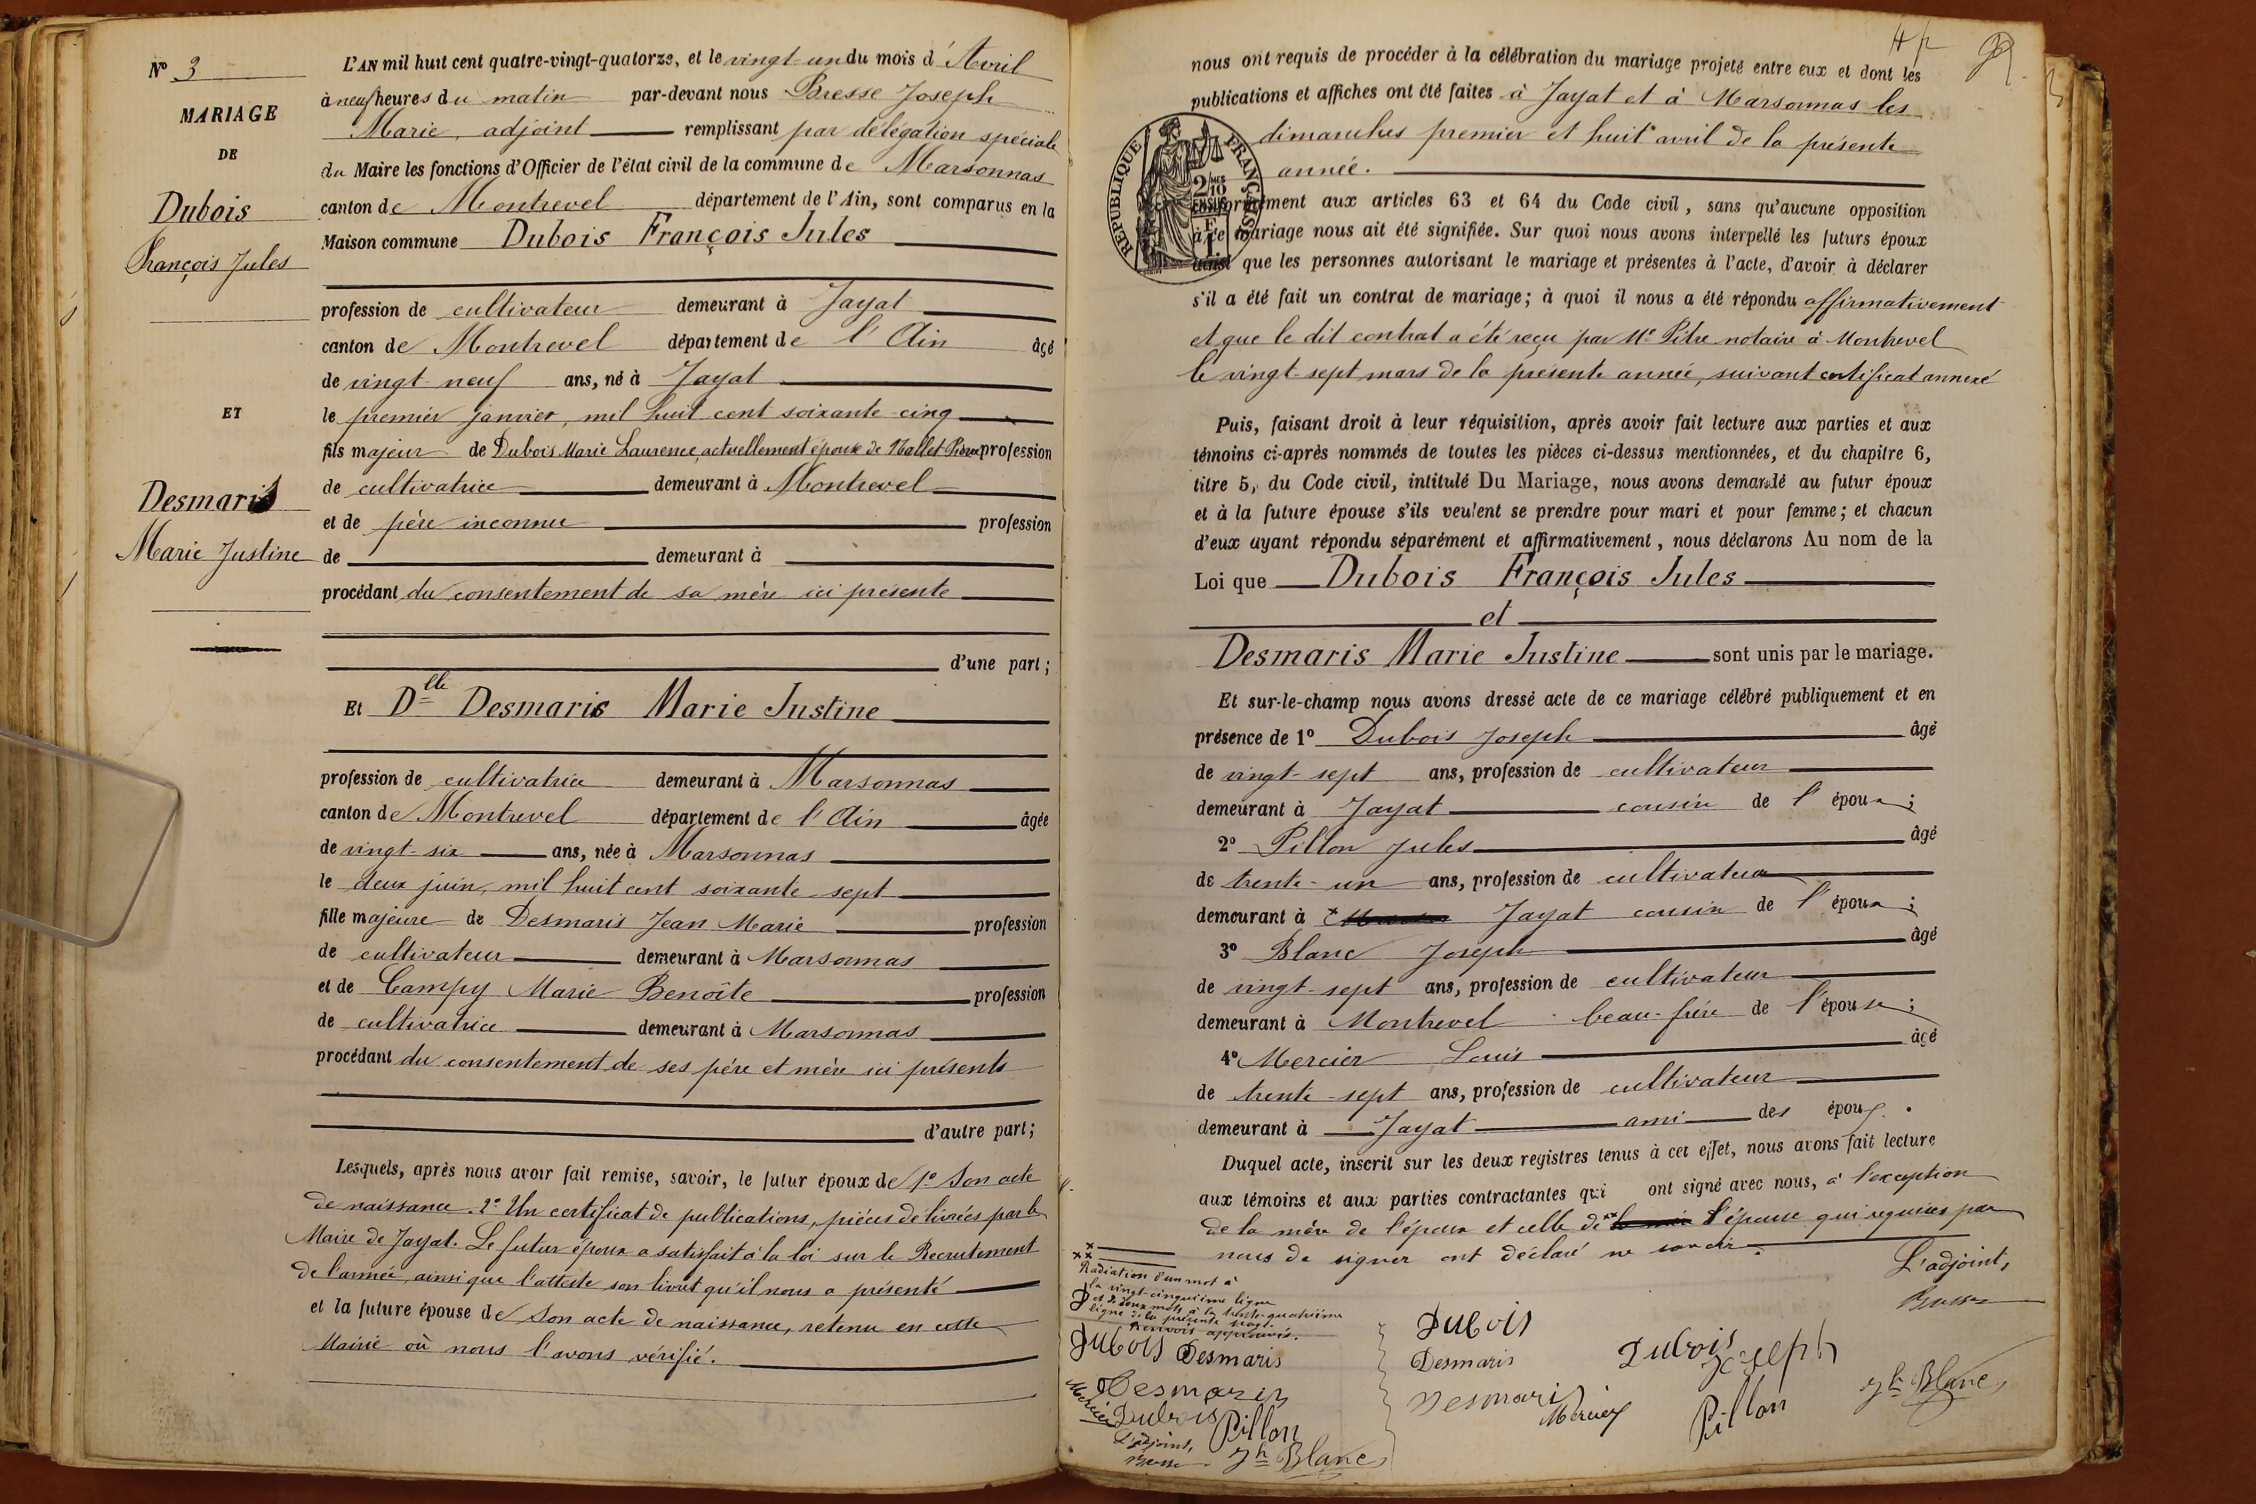 N° 3
MARIAGE
DE
Dubois
François Jules
ET
Desmaris
Marie Justine
L'AN mil huit cent quatre-vingt-quatorze, et le vingt-un du mois d'Avril
à neuf heures du matin par-devant nous Bresse Joseph
Marie, adjoint remplissant par délégation spéciale
du Maire les fonctions d'Officier de l'état civil de la commune de Marsonnas
canton de Montrevel département de l'Ain, sont comparus en la
Maison commune Dubois François Jules
profession de cultivateur demeurant à Jayat
canton de Montrevel département de l'Ain âgé
de vingt-neuf ans, né à Jayat
le premier janvier, mil huit cent soixante-cinq
fils majeur de Dubois Marie Laurence, actuellement épouse de Mallet Pierre profession
de cultivatrice demeurant à Montrevel
et de père inconnu profession
de demeurant à
procédant du consentement de sa mère ici présente
d'une part;
Et Dlle Desmaris Marie Justine
profession de cultivatrice demeurant à Marsonnas
canton de Montrevel département de l'Ain âgée
de vingt-six ans, née à Marsonnas
le deux juin, mil huit cent soixante-sept
fille majeure de Desmaris Jean Marie profession
de cultivateur demeurant à Marsonnas
et de Campy Marie Benoîte profession
de cultivatrice demeurant à Marsonnas
procédant du consentement de ses père et mère ici présents
d'autre part;
Lesquels, après nous avoir fait remise, savoir, le futur époux de 1° Son acte
de naissance. 2° Un certificat de publications, pièces délivrées par le
Maire de Jayat. Le futur époux a satisfait à la loi sur le Recrutement
de l'armée, ainsi que l'atteste son livret qu'il nous a présenté
et la future épouse de Son acte de naissance, retenu en cette
Mairie où nous l'avons vérifié.
nous ont requis de procéder à la célébration du mariage projeté entre eux et dont les
publications et affiches ont été faites à Jayat et à Marsonnas les
dimanches premier et huit avril de la présente
année.
REPUBLIQUE FRANÇAISE
2/10 EN SUS
conformément aux articles 63 et 64 du Code civil, sans qu'aucune opposition
à ce mariage nous ait été signifiée. Sur quoi nous avons interpellé les futurs époux
ainsi que les personnes autorisant le mariage et présentes à l'acte, d'avoir à déclarer
s'il a été fait un contrat de mariage; à quoi il nous a été répondu affirmativement
et que le dit contrat a été reçu par Me Pitre notaire à Montrevel
le vingt-sept mars de la présente année, suivant certificat annexé
Puis, faisant droit à leur réquisition, après avoir fait lecture aux parties et aux
témoins ci-après nommés de toutes les pièces ci-dessus mentionnées, et du chapitre 6,
titre 5, du Code civil, intitulé Du Mariage, nous avons demandé au futur époux
et à la future épouse s'ils veulent se prendre pour mari et pour femme; et chacun
d'eux ayant répondu séparément et affirmativement, nous déclarons Au nom de la
Loi que Dubois François Jules
et
Desmaris Marie Justine sont unis par le mariage.
Et sur-le-champ nous avons dressé acte de ce mariage célébré publiquement et en
présence de 1° Dubois Joseph âgé
de vingt-sept ans, profession de cultivateur
demeurant à Jayat cousin de l'époux;
2° Pillon Jules âgé
de trente-un ans, profession de cultivateur
demeurant à Jayat cousin de l'époux;
3° Blanc Joseph âgé
de vingt-sept ans, profession de cultivateur
demeurant à Montrevel beau-frère de l'épouse;
4° Mercier Louis âgé
de trente-sept ans, profession de cultivateur
demeurant à Jayat ami des époux.
Duquel acte, inscrit sur les deux registres tenus à cet effet, nous avons fait lecture
aux témoins et aux parties contractantes qui ont signé avec nous, à l'exception
de la mère de l'époux et celle de l'épouse qui requises par
nous de signer ont déclaré ne savoir.
L'adjoint,
Bresse
Radiation d'un mot à
la vingt-cinquième ligne
et de deux mots à la trente-quatrième
ligne de la présente page.
Renvois approuvés.
Dubois Desmaris
Desmaris
Mercier
Dubois Pillon
L'adjoint,
Bresse Jh Blanc
Dubois
Desmaris
Desmaris
Mercier
Dubois Joseph
Pillon
Jh Blanc